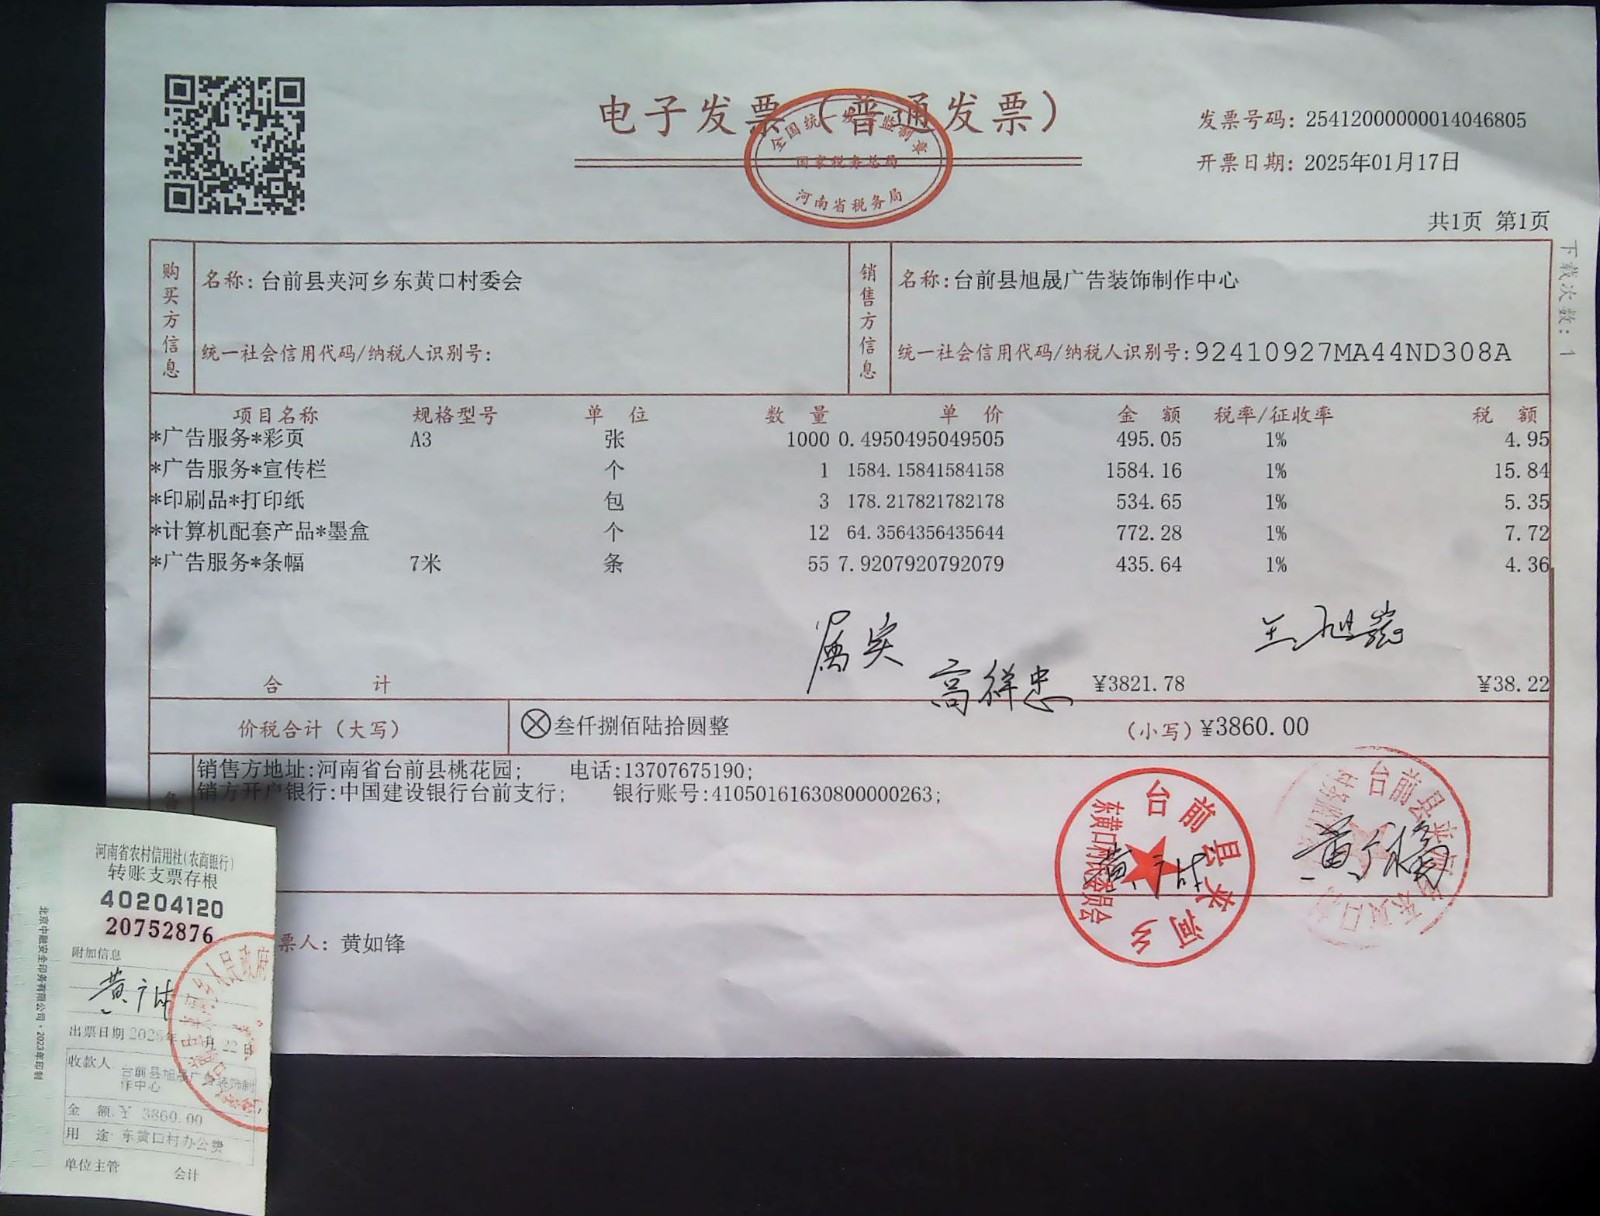 电子发票（普通发票）
全国统一发票监制章
国家税务总局
河南省税务局
发票号码：25412000000014046805
开票日期：2025年01月17日
共1页 第1页
下载次数：1
购买方信息
名称：台前县夹河乡东黄口村委会
统一社会信用代码/纳税人识别号：
销售方信息
名称：台前县旭晟广告装饰制作中心
统一社会信用代码/纳税人识别号：92410927MA44ND308A
项目名称 规格型号 单位 数量 单价 金额 税率/征收率 税额
*广告服务*彩页 A3 张 1000 0.4950495049505 495.05 1% 4.95
*广告服务*宣传栏 个 1 1584.15841584158 1584.16 1% 15.84
*印刷品*打印纸 包 3 178.217821782178 534.65 1% 5.35
*计算机配套产品*墨盒 个 12 64.3564356435644 772.28 1% 7.72
*广告服务*条幅 7米 条 55 7.9207920792079 435.64 1% 4.36
属实
高祥忠
合计 ¥3821.78 ¥38.22
价税合计（大写） ⊗叁仟捌佰陆拾圆整 （小写）¥3860.00
销售方地址：河南省台前县桃花园； 电话：13707675190；
销方开户银行：中国建设银行台前支行； 银行账号：41050161630800000263；
台前县夹河乡
东黄口村民委员会
票人：黄如锋
河南省农村信用社（农商银行）
转账支票存根
40204120
20752876
附加信息
出票日期 2025年 月22日
收款人 台前县旭晟广告装饰制作中心
金额 ¥ 3860.00
用途 东黄口村办公费
单位主管 会计
北京中融安全印务有限公司·2023年印制